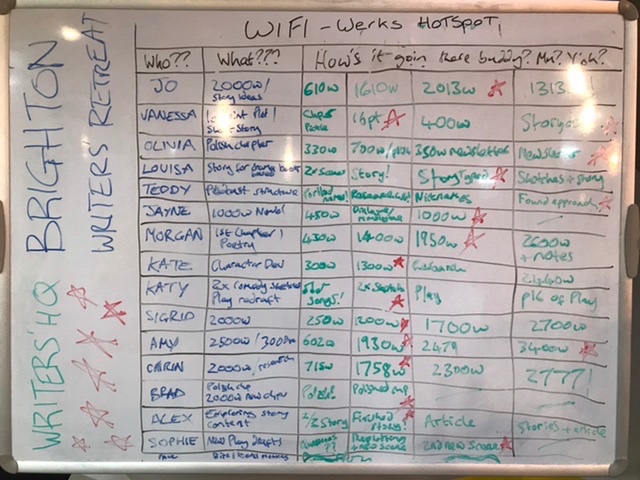 WIFI - Werks HOTSPOT!
BRIGHTON
WRITERS RETREAT
WRITERS' HQ
WHO?? WHAT??? How's it goin there buddy?
JO 2000w/ story ideas 610w 1610w 2013w 1313
VANESSA Plot / Short Story 16pt 400w
OLIVIA Polish chapter 330w 700w 350w newsletter Newsletter
LOUISA Story for 2x Story! Sketches + story
TEDDY structure Nicknames Found approach
JAYNE 1000w Novel 450w 1000w
MORGAN 1st Chapter / Poetry 430w 1400w 1950w 2600w + notes
KATE Character Dev 300w 1300w Research
KATY 2x comedy sketches Play redraft songs! 2x Sketch Play pk of Play
SIGRID 2000w 250w 1200w 1700w 2700w
AMY 2500w / 3000w 602w 1930w 2479 3400w
CARIN 2000w, 715w 1758w 2300w 2777!
BRAD Polish chp 2000w new chp Polish! Polished chp
ALEX Exploring story content 1/2 Story Finished story! Article stories + article
SOPHIE New Play Drafts ?? 2nd new scene